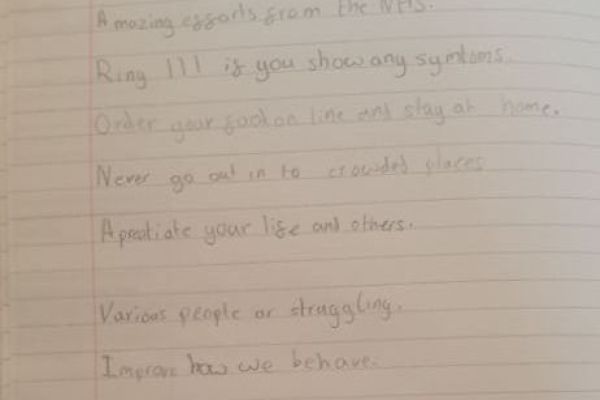 Amazing efforts from the NHS.
Ring 111 if you show any symtoms.
Order your food on line and stay at home.
Never go out in to crowded places
Apreatiate your life and others.
Various people or struggling.
Improve how we behave.